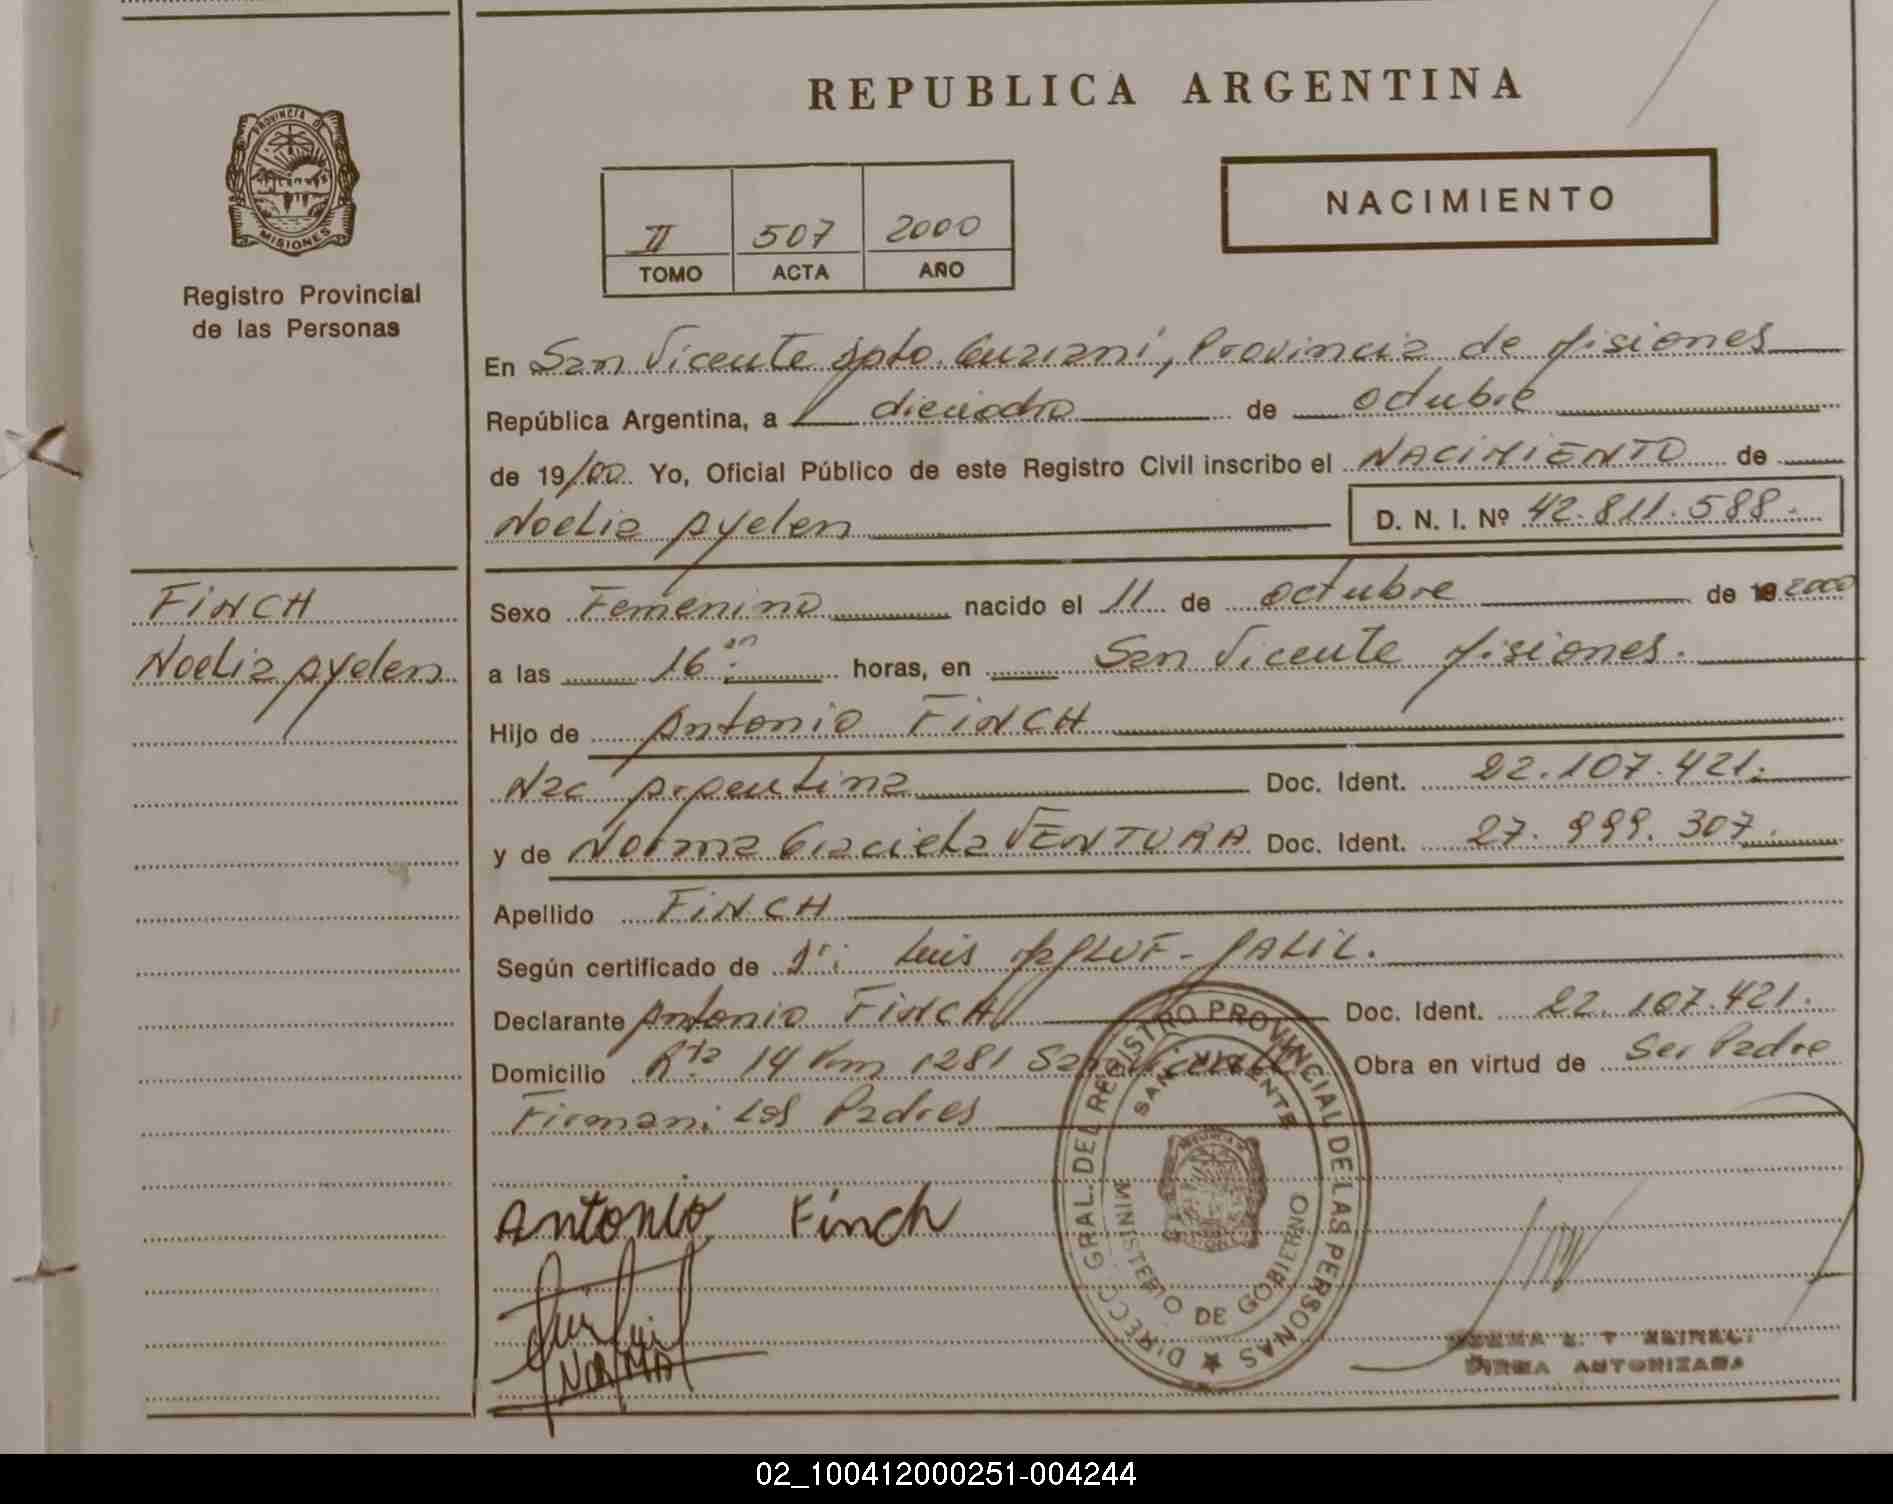 REPUBLICA ARGENTINA
PROVINCIA DE
MISIONES
Registro Provincial
de las Personas
NACIMIENTO
II 507 2000
TOMO ACTA AÑO
En San Vicente Dpto. Guarani, Provincia de Misiones
República Argentina, a dieciocho de octubre
de 19/00. Yo, Oficial Público de este Registro Civil inscribo el NACIMIENTO de
Noelia Ayelen D. N. I. Nº 42.811.588.
FINCH
Noelia Ayelen
Sexo Femenino nacido el 11 de octubre de 2000
a las 16 horas, en San Vicente Misiones.
Hijo de Antonio FINCH
Nac Argentina Doc. Ident. 22.107.421.
y de Norma Graciela VENTURA Doc. Ident. 27.999.307.
Apellido FINCH
Según certificado de Dr: Luis JALIL.
Declarante Antonio FINCH Doc. Ident. 22.107.421.
Domicilio Rta 14 Km 1281 San Vicente Obra en virtud de Ser Padre
Firman: Los Padres
Antonio Finch
NORMA
DIRECC. GRAL. DEL REGISTRO PROVINCIAL DE LAS PERSONAS
SAN VICENTE
MINISTERIO DE GOBIERNO
FIRMA AUTORIZADA
02_100412000251-004244